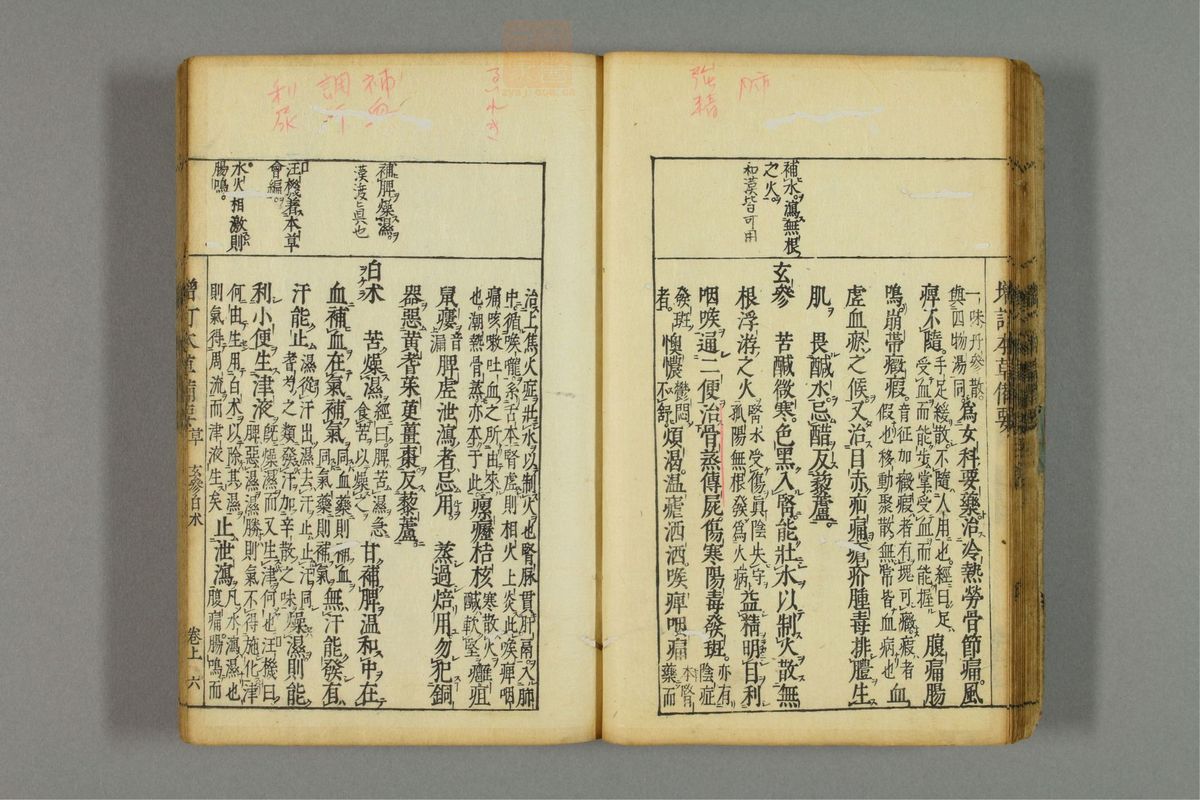 一味丹參散與四物湯同。爲女科要藥治冷熱勞骨節痛。風
痺不隨。手足緩散不隨人用也。經曰。足受血而能步掌受血而能握腹痛腸
鳴。崩帶癥瘕。音征加。癥者有塊可癥。瘕者假也。移動聚散無常。皆血病也血
虛血瘀之候。又治目赤疝痛瘡疥腫毒排膿生
肌。畏鹹水。忌醋。反藜蘆。
玄參 苦鹹微寒。色黑入腎。能壯水以制火。散無
根浮游之火腎水受傷眞陰失守孤陽無根發爲火病益精明目利
咽喉。通二便。治骨蒸傳屍傷寒陽毒發斑。亦有陰症
發斑者。懊憹鬱悶不舒煩渴。溫瘧洒洒。喉痺咽痛本腎藥而
補水。瀉無根
之火。
和漢皆可用
肺
強精
治上焦火症壯水以制火也腎脉貫肝膈。入肺
中循喉嚨。系舌本腎虛則相火上炎。此喉痺咽
痛咳嗽吐血之所由來也。潮熱骨蒸亦本于此瘰癧結核寒散火鹹軟堅癰疽
鼠瘻音漏脾虛泄瀉者忌用 蒸過焙用。勿犯銅
器。惡黃耆茱萸薑棗反藜蘆
白朮 苦燥濕經曰。脾苦濕急食苦以燥之甘補脾溫和中在
血補血在氣補氣同血藥則補血同氣藥則補氣無汗能發有
汗能止濕從汗出。濕去汗止。止汗同者芍之類。發汗加辛散之味燥濕則能
利小便生津液旣燥濕而又生津何也汪機曰脾惡濕。濕勝則氣不得施化津
何由生用白朮以除其濕則氣得周流而津液生矣止泄瀉凡水瀉濕也腹痛腸鳴而
補脾燥濕。
漢渡ヒ眞也
汪機著本草
會編。
水火相激則
腸鳴。
るいれき
補血
調汗
利尿
增訂本草備要 草 玄參白朮 卷上 六